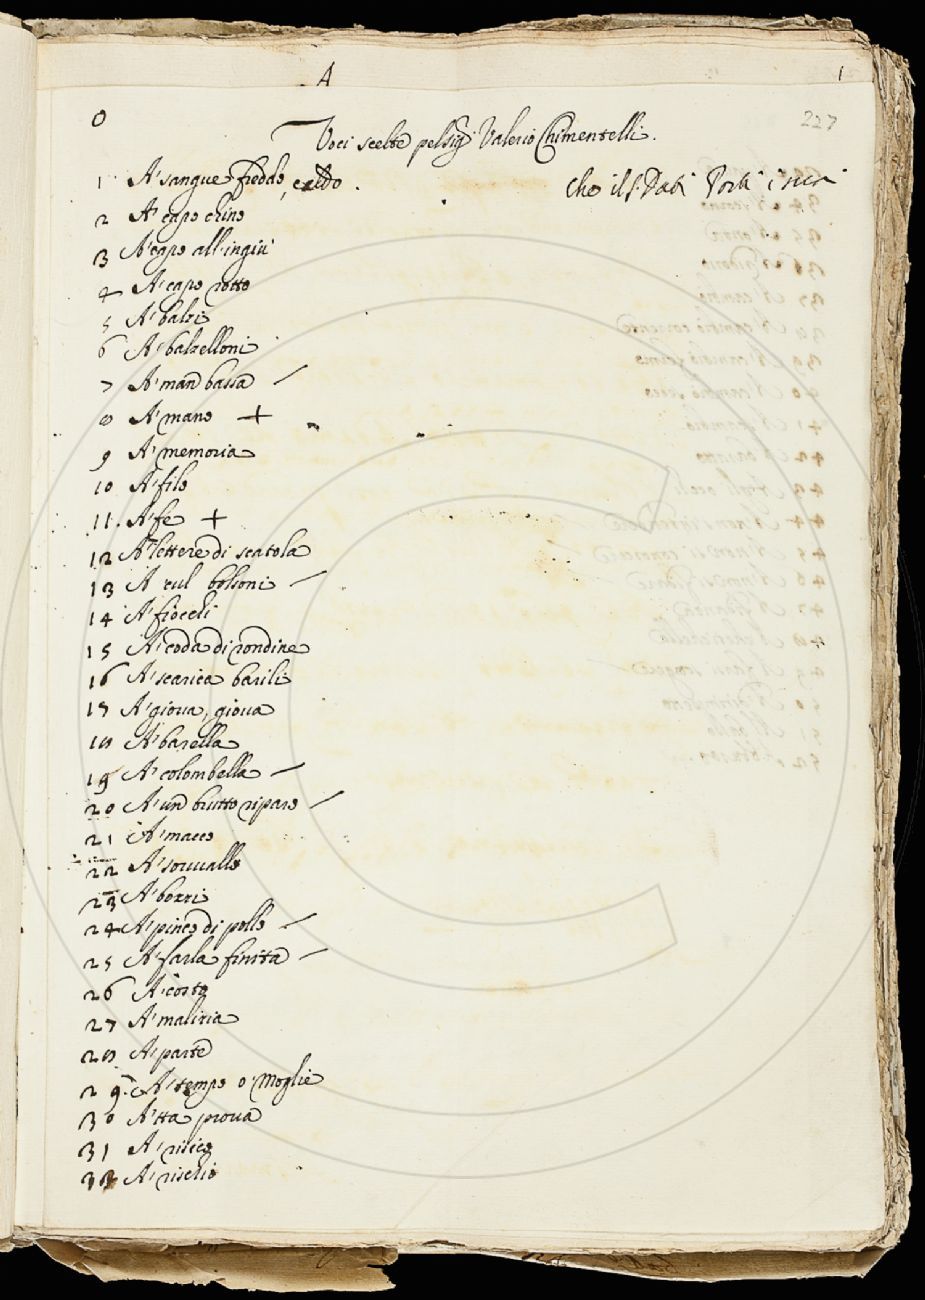 A 1
0 227
Voci scelte pel sig Valerio Chimentelli.
1 A' sangue freddo, caldo. Che il s Dati
2 A' capo chino
3 A' capo all'ingiù
4 A' capo rotto
5 A' balzi
6 A' balzelloni
7 A' man bassa /
8 A' mano +
9 A' memoria
10 A' filo
11. A' fe +
12 A' lettere di scatola
13 A' cul bolsoni /
14 A' fiocchi
15 A' coda di rondine
16 A' scarica barili
17 A' gioua, gioua
18 A' barella
19 A' colombella /
20 A' un brutto riparo /
21 A' macco
22 A' souuallo
23 A' borri
24 A' pinco di pollo /
25 A' farla finita /
26 A' costo
27 A' malizia
28 A' parte
29. A' tempo o' Moglie
30 A' tta proua
31 A'
32 A' rischio